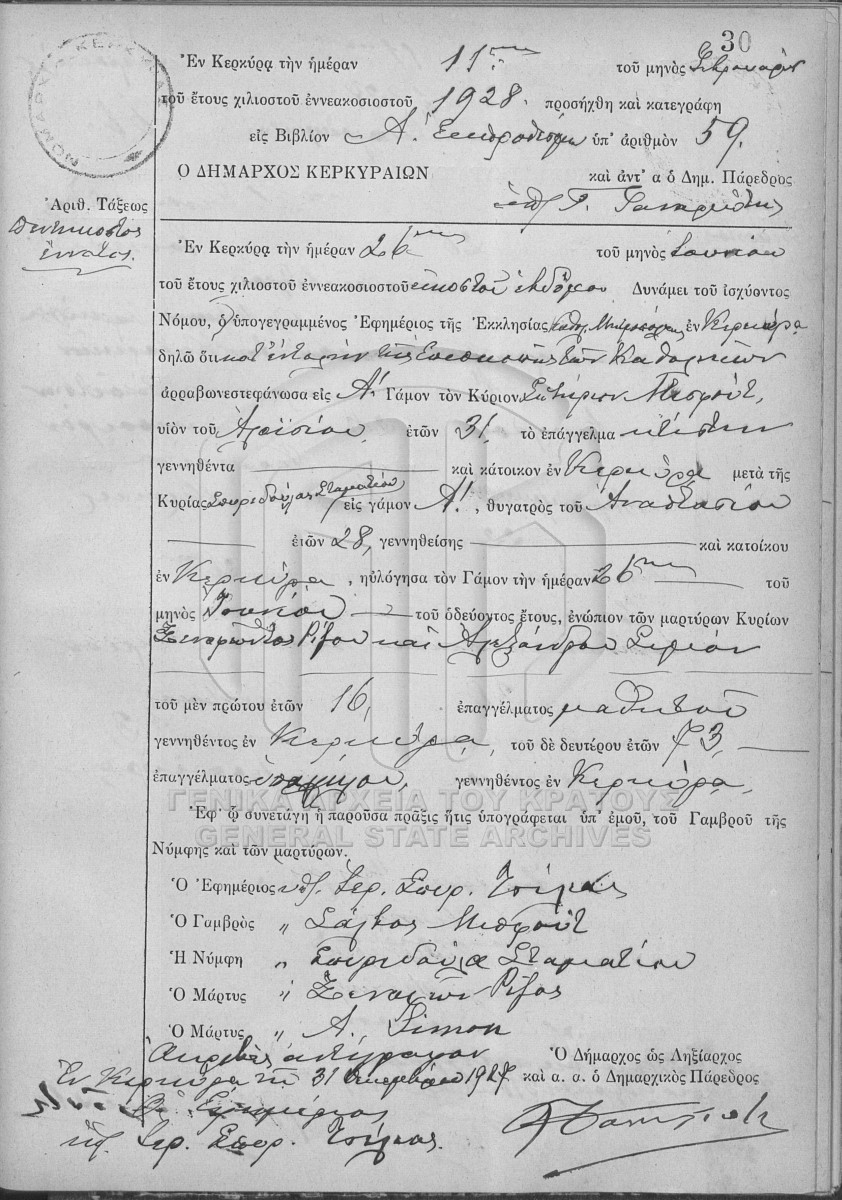 30
ΝΟΜΑΡΧΙΑ ΚΕΡΚΥΡΑΣ
Ἐν Κερκύρᾳ τὴν ἡμέραν 11ην τοῦ μηνὸς
τοῦ ἔτους χιλιοστοῦ ἐννεακοσιοστοῦ 1928. προσήχθη καὶ κατεγράφη
εἰς Βιβλίον Α. Ἐκπρόθεσμα ὑπ' ἀριθμὸν 59.
Ο ΔΗΜΑΡΧΟΣ ΚΕΡΚΥΡΑΙΩΝ καὶ ἀντ' α ὁ Δημ. Πάρεδρος
Ἀριθ. Τάξεως
Πεντηκοστὸς
ἔννατος.
Ἐν Κερκύρᾳ τὴν ἡμέραν 26ην τοῦ μηνὸς Ἰουνίου
τοῦ ἔτους χιλιοστοῦ ἐννεακοσιοστοῦ εἰκοστοῦ ἑβδόμου Δυνάμει τοῦ ἰσχύοντος
Νόμου, ὁ ὑπογεγραμμένος Ἐφημέριος τῆς Ἐκκλησίας καθολ. Μητροπόλεως ἐν Κερκύρᾳ
δηλῶ ὅτι κατ' ἐντολὴν τῆς Ἐπισκοπῆς τῶν Καθολικῶν
ἀρραβωνεστεφάνωσα εἰς Α! Γάμον τὸν Κύριον Σωτήριον Μισφούτ,
υἱὸν τοῦ Ἀλοϊσίου, ἐτῶν 31, τὸ ἐπάγγελμα κτίστην
γεννηθέντα καὶ κάτοικον ἐν Κερκύρᾳ μετὰ τῆς
Κυρίας Σπυριδούλας Σταματίου εἰς γάμον Α!, θυγατρὸς τοῦ Ἀναστασίου
ἐτῶν 28, γεννηθείσης καὶ κατοίκου
ἐν Κερκύρᾳ, ηὐλόγησα τὸν Γάμον τὴν ἡμέραν 26ην τοῦ
μηνὸς Ἰουνίου τοῦ ὁδεύοντος ἔτους, ἐνώπιον τῶν μαρτύρων Κυρίων
Ξενοφῶντος Ρίζου καὶ Ἀλεξάνδρου Σιμὸν
τοῦ μὲν πρώτου ἐτῶν 16, ἐπαγγέλματος μαθητοῦ
γεννηθέντος ἐν Κερκύρᾳ, τοῦ δὲ δευτέρου ἐτῶν 73,
ἐπαγγέλματος γεννηθέντος ἐν Κερκύρᾳ,
ΓΕΝΙΚΑ ΑΡΧΕΙΑ ΤΟΥ ΚΡΑΤΟΥΣ
Ἐφ' ᾧ συνετάγη ἡ παροῦσα πρᾶξις ἥτις ὑπογράφεται ὑπ' ἐμοῦ, τοῦ Γαμβροῦ τῆς
GENERAL STATE ARCHIVES
Νύμφης καὶ τῶν μαρτύρων.
Ὁ Ἐφημέριος ὑπ. Ἱερ. Σπυρ.
Ὁ Γαμβρὸς „ Σάλβος Μισφούτ
Ἡ Νύμφη „ Σπυριδούλα Σταματίου
Ὁ Μάρτυς „ Ξενοφῶν Ρίζος
Ὁ Μάρτυς „ A. Simon
Ἀκριβὲς ἀντίγραφον
Ἐν Κερκύρᾳ τῇ 31 Δεκεμβρίου 1927
Ὁ Ἐφημέριος
ὑπ. Ἱερ. Σπυρ.
Ὁ Δήμαρχος ὡς Ληξίαρχος
καὶ α. α. ὁ Δημαρχικὸς Πάρεδρος